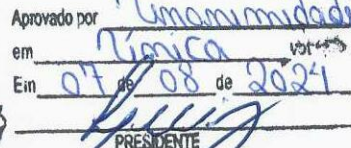 Aprovado por Unanimidade
em Única votos
Em 07 de 08 de 2024
PRESIDENTE